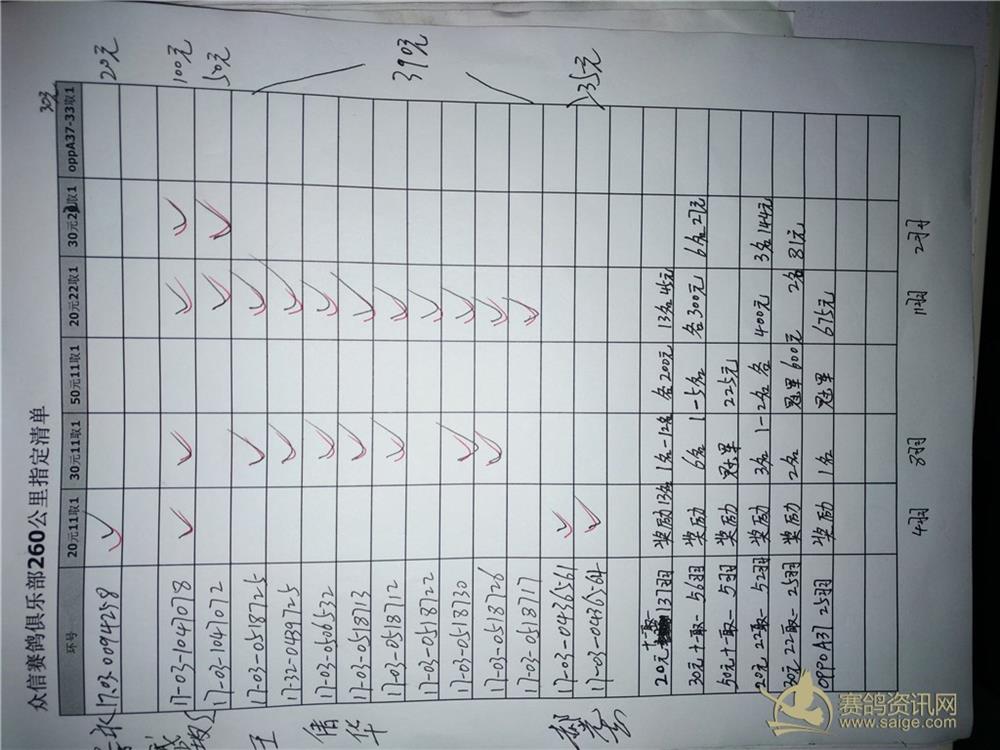 众信赛鸽俱乐部260公里指定清单
环号 20元11取1 30元11取1 50元11取1 20元22取1 30元22取1 oppA37-33取1
17-03-0094258 20元
17-03-1047078 100元
17-03-1047072 50元
17-03-0518725
17-32-0489725
17-03-0506532
17-03-0518713
17-03-0518712 390元
17-03-0518722
17-03-0518730
17-03-0518726
17-03-0518717
17-03-0436561
17-03-0436564 35元
王
倩
华
20元十一取一 137羽 奖励13名 1名-12名 各200元 13名45元
30元十一取一 56羽 奖励 6名 1-5名 各300元 6名27元
50元十一取一 5羽 奖励 冠军 225元
20元22取一 52羽 奖励 3名 1-2名 各400元 3名144元
30元22取一 25羽 奖励 2名 冠军600元 2名81元
OPPOA37 25羽 奖励 1名 冠军 675元
4羽 8羽 11羽 2羽
赛鸽资讯网
www.saige.com